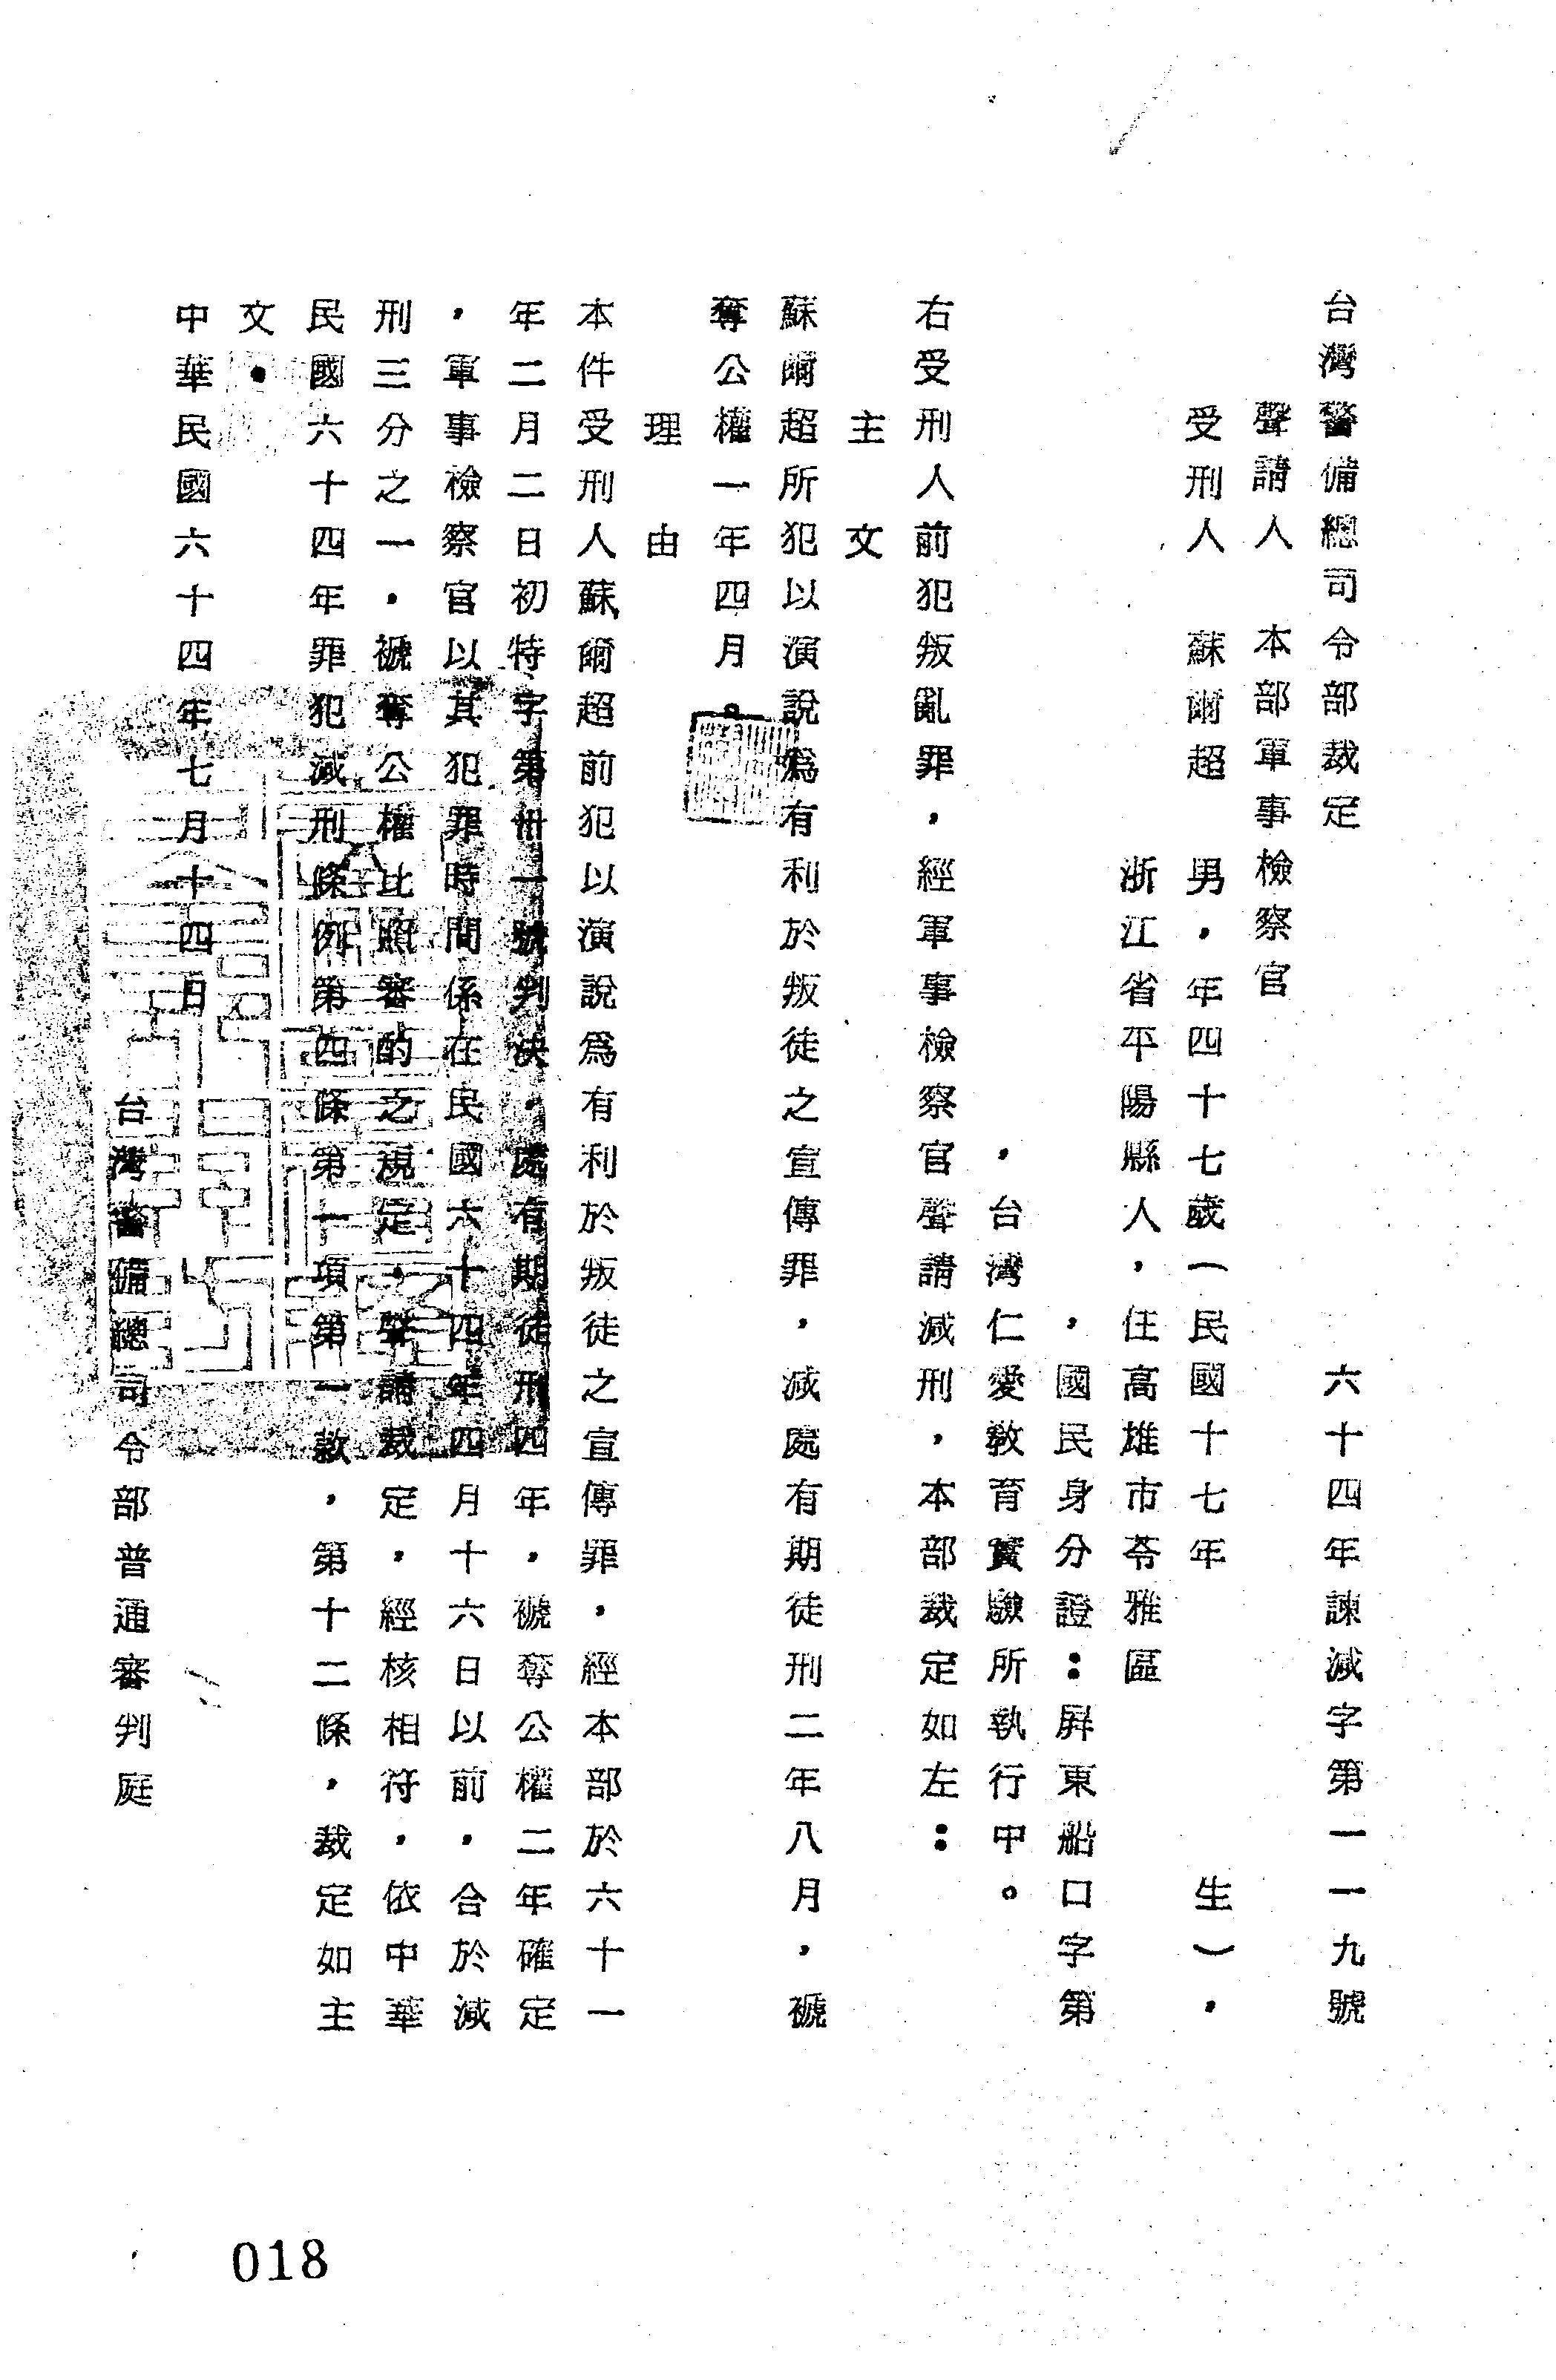 台灣警備總司令部裁定　六十四年諫減字第一一九號
聲請人　本部軍事檢察官
受刑人　蘇爾超　男，年四十七歲（民國十七年　生），
浙江省平陽縣人，住高雄市苓雅區
，國民身分證：屏東船口字第
，台灣仁愛教育實驗所執行中。
右受刑人前犯叛亂罪，經軍事檢察官聲請減刑，本部裁定如左：
主文
蘇爾超所犯以演說為有利於叛徒之宣傳罪，減處有期徒刑二年八月，褫
奪公權一年四月。
理由
本件受刑人蘇爾超前犯以演說為有利於叛徒之宣傳罪，經本部於六十一
年二月二日初特字第卅一號判決，處有期徒刑四年，褫奪公權二年確定
，軍事檢察官以其犯罪時間係在民國六十四年四月十六日以前，合於減
刑三分之一，褫奪公權比照審酌之規定，聲請裁定，經核相符，依中華
民國六十四年罪犯減刑條例第四條第一項第一款，第十二條，裁定如主
文。
中華民國六十四年七月十四日
台灣警備總司令部普通審判庭
018